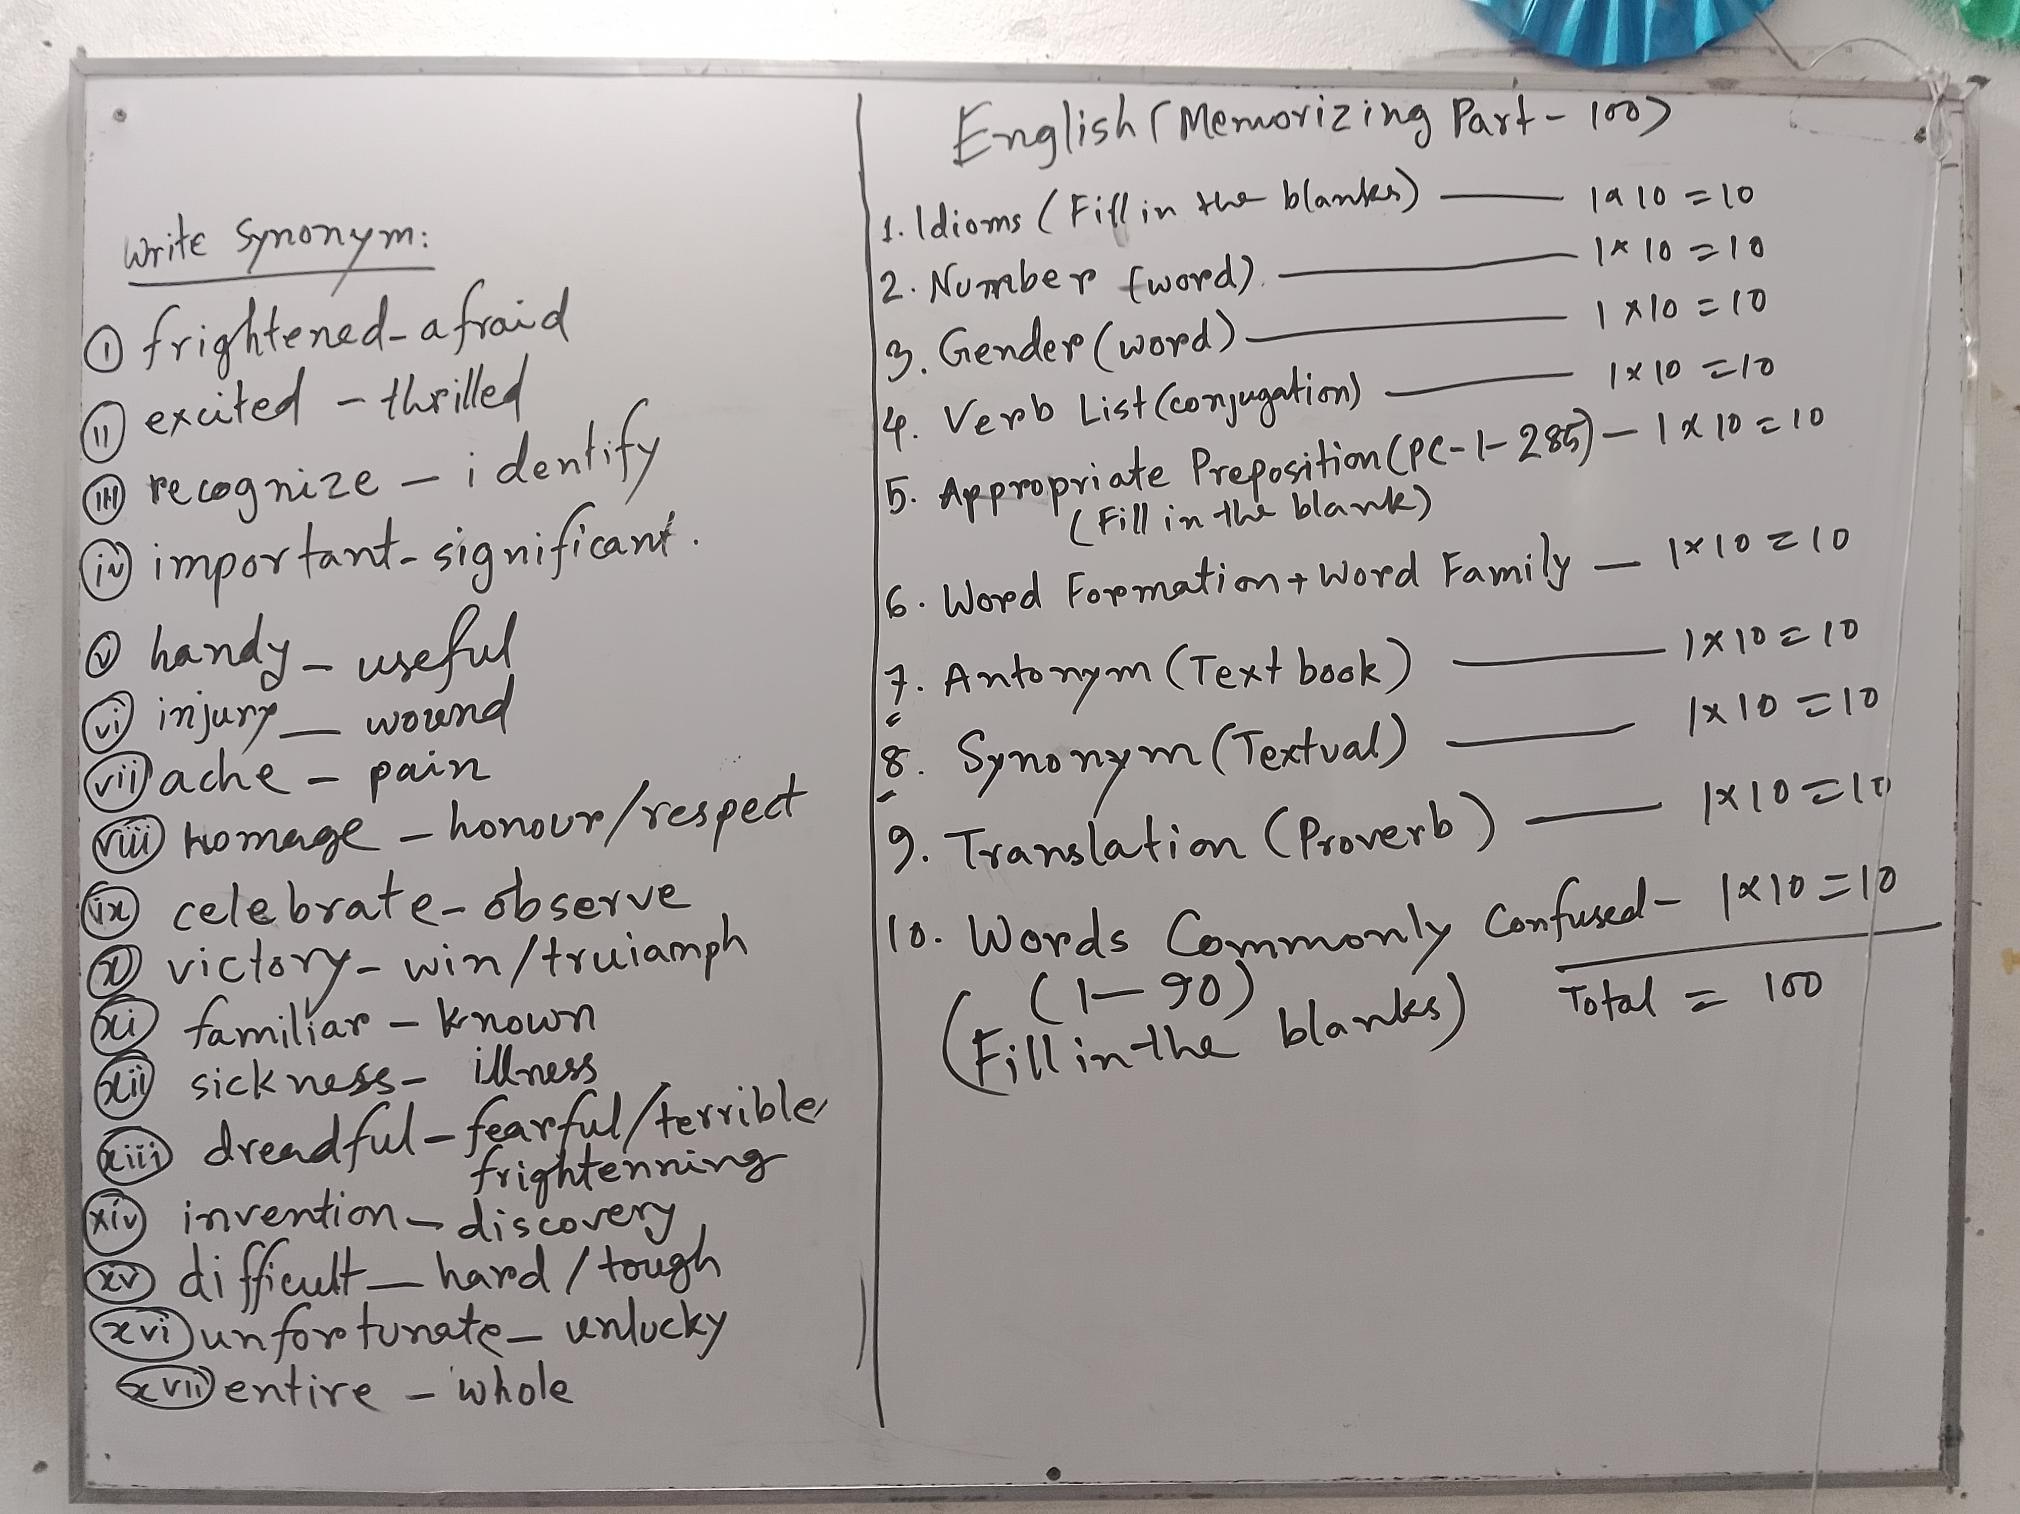 Write Synonym:
(i) frightened - afraid
(ii) excited - thrilled
(iii) recognize - identify
(iv) important - significant.
(v) handy - useful
(vi) injury - wound
(vii) ache - pain
(viii) homage - honour/respect
(ix) celebrate - observe
(x) victory - win/truiamph
(xi) familiar - known
(xii) sickness - illness
(xiii) dreadful - fearful/terrible/
frightenning
(xiv) invention - discovery
(xv) difficult - hard/tough
(xvi) unfortunate - unlucky
(xvii) entire - whole
English (Memorizing Part - 100)
1. Idioms (Fill in the blanks) — 1x10=10
2. Number (word). — 1x10=10
3. Gender (word) — 1x10=10
4. Verb List (conjugation) — 1x10=10
5. Appropriate Preposition (PC-1-285) — 1x10=10
(Fill in the blank)
6. Word Formation + Word Family — 1x10=10
7. Antonym (Text book) — 1x10=10
8. Synonym (Textual) — 1x10=10
9. Translation (Proverb) — 1x10=10
10. Words Commonly Confused - 1x10=10
(1-90)
(Fill in the blanks)
Total = 100